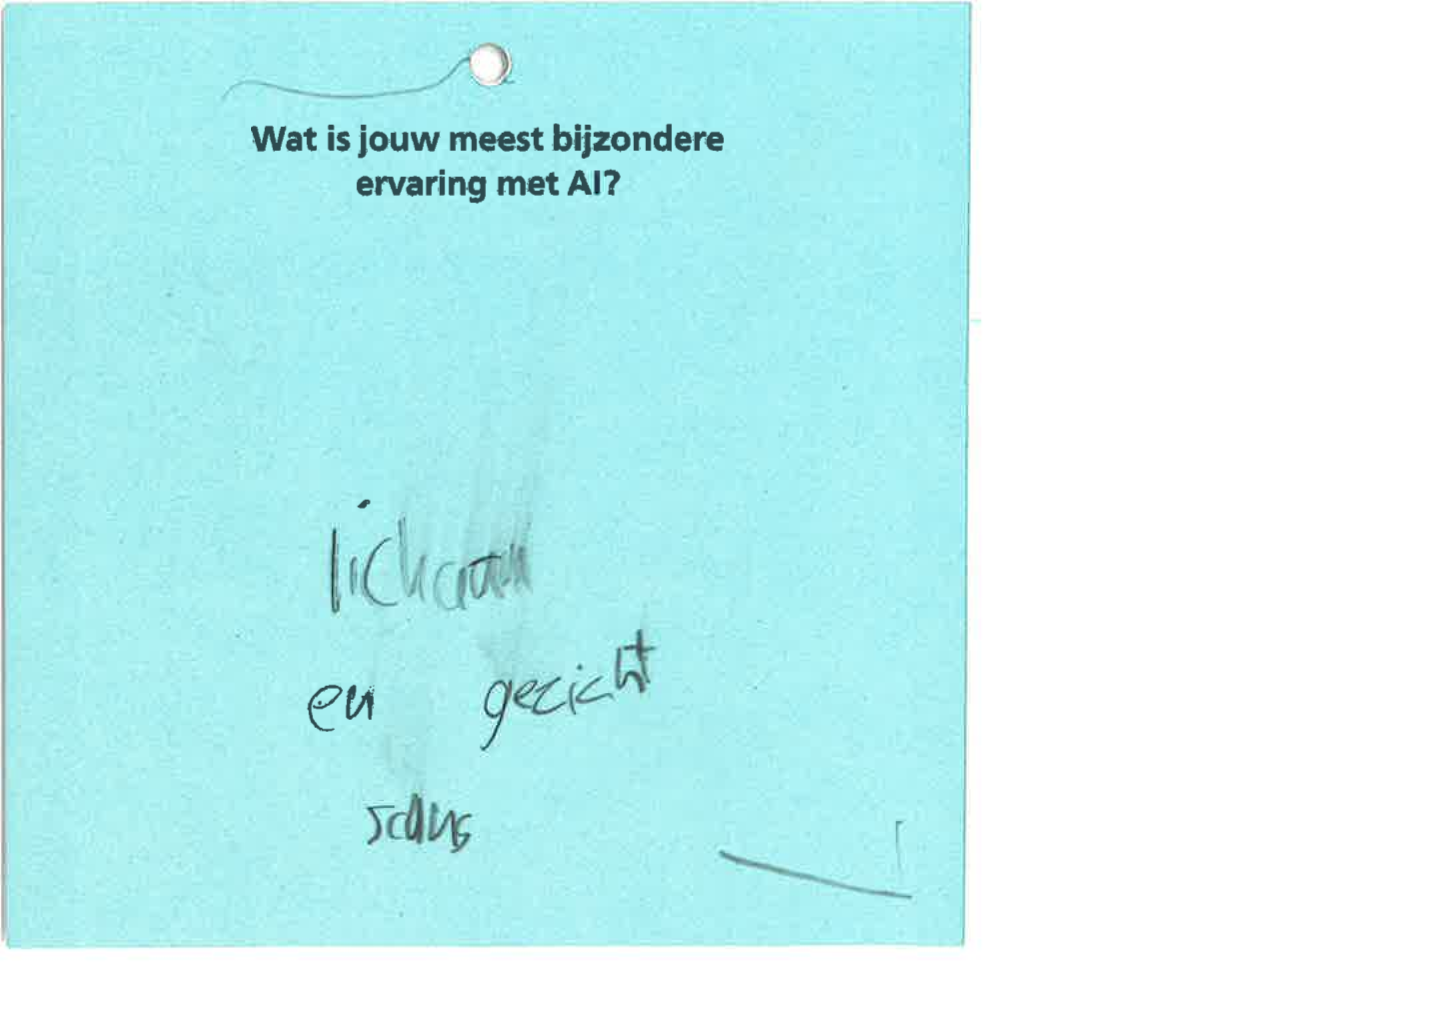 Wat is jouw meest bijzondere
ervaring met AI?
lichaam
en gezicht
scans